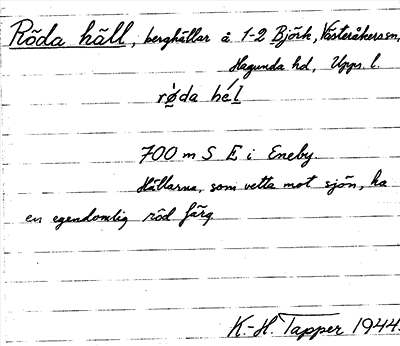 Röda häll, berghällar å 1-2 Björk, Västeråkers sn,
Hagunda hd, Upps. l.
rø̀da hé̱l
700 m S E i Eneby.
Hällarna, som vetta mot sjön, ha
en egendomlig röd färg
K.-H. Tapper 1944.